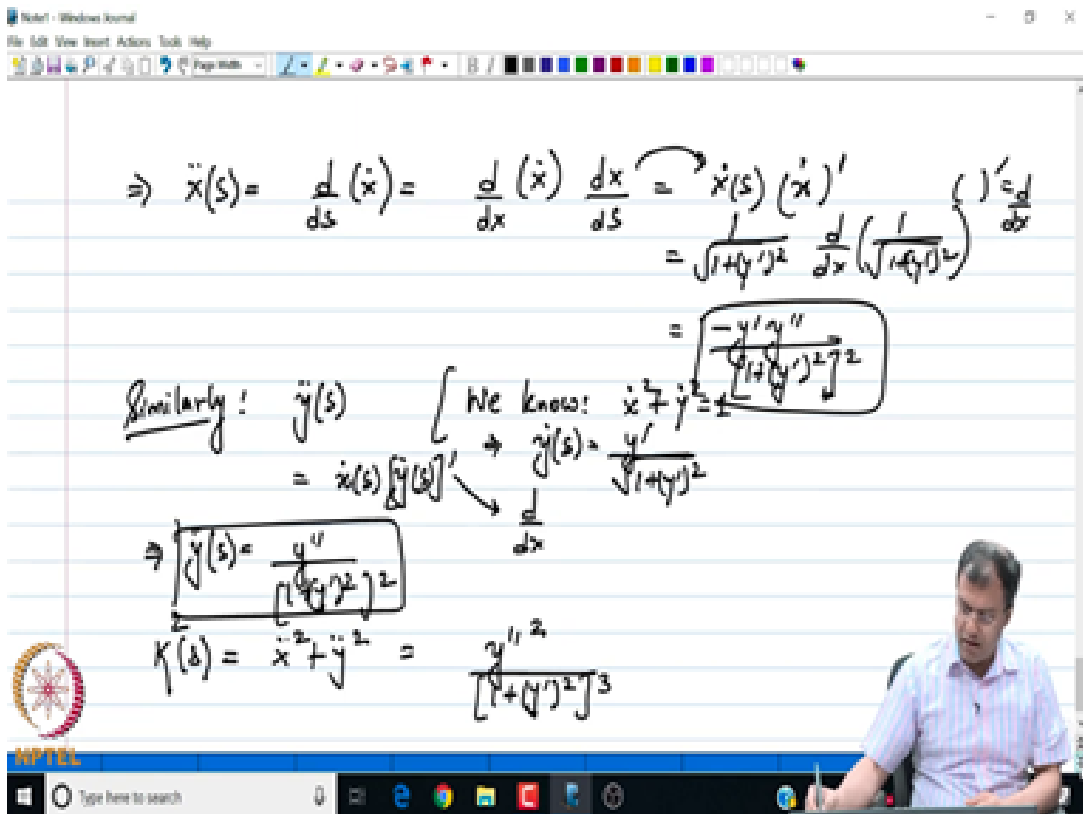 Note1 - Windows Journal
File Edit View Insert Actions Tools Help
Page Width B I
⇒ ẍ(s) = d/ds (ẋ) = d/dx (ẋ) dx/ds = ẋ(s) (ẋ)' ( )' = d/dx
= 1/√(1+(y')²) d/dx (1/√(1+(y')²))
= -y'y''/[1+(y')²]²
Similarly: ÿ(s) [We know: ẋ²+ẏ²=1
= ẋ(s) [ẏ(s)]' → ẏ(s) = y'/√(1+(y')²)
d/dx
⇒ ÿ(s) = y''/[1+(y')²]²
K²(s) = ẍ²+ÿ² = y''²/[1+(y')²]³
NPTEL
Type here to search